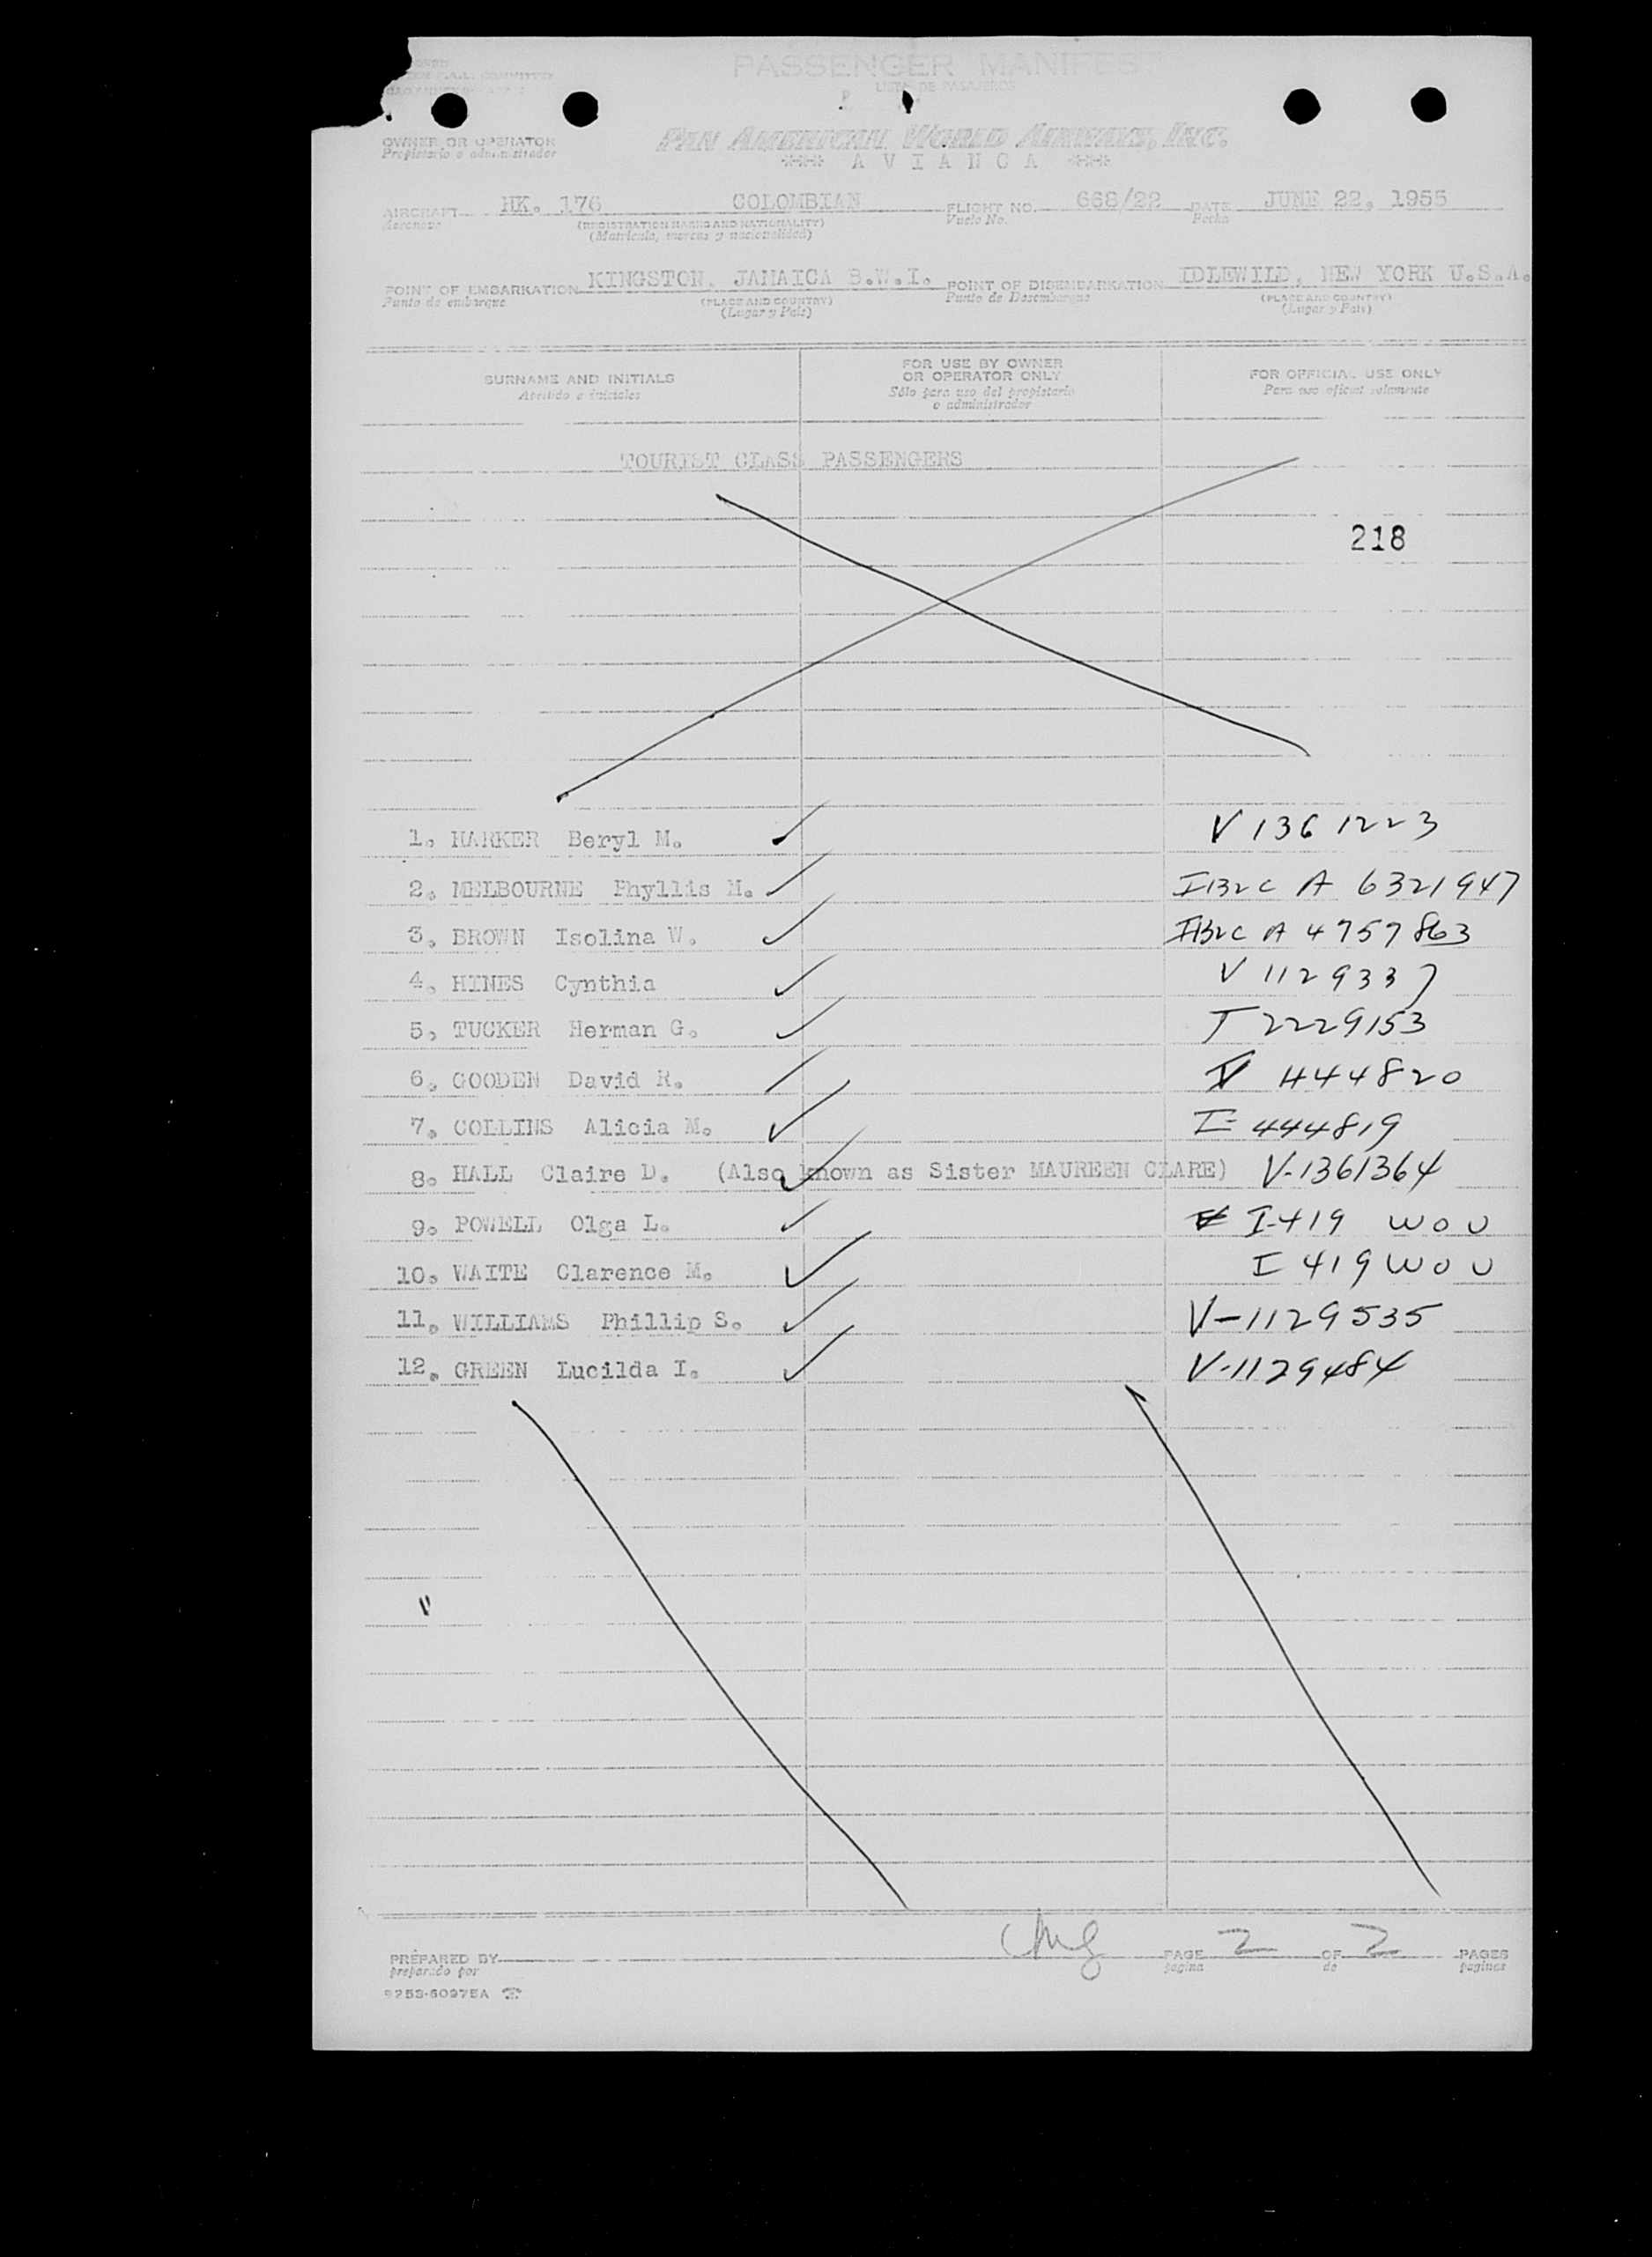 PASSENGER MANIFEST
LISTA DE PASAJEROS
OWNER OR OPERATOR
Propietario o administrador
PAN AMERICAN WORLD AIRWAYS, INC.
*** A V I A N C A ***
AIRCRAFT HK. 176 COLOMBIAN FLIGHT NO. 668/22 DATE JUNE 22, 1955
Aeronave (REGISTRATION MARKS AND NATIONALITY) Vuelo No. Fecha
(Matrícula, marcas y nacionalidad)
POINT OF EMBARKATION KINGSTON, JAMAICA B.W.I. POINT OF DISEMBARKATION IDLEWILD, NEW YORK U.S.A.
Punto de embarque (PLACE AND COUNTRY) Punto de Desembarque (PLACE AND COUNTRY)
(Lugar y País) (Lugar y País)
SURNAME AND INITIALS
Apellido e iniciales
FOR USE BY OWNER
OR OPERATOR ONLY
Sólo para uso del propietario
o administrador
FOR OFFICIAL USE ONLY
Para uso oficial solamente
TOURIST CLASS PASSENGERS
218
1. HARKER Beryl M. V 1361223
2. MELBOURNE Phyllis M. A 6321947
3. BROWN Isolina W. A 4757863
4. HINES Cynthia V 1129337
5. TUCKER Herman G. T 2229153
6. GOODEN David R. 444820
7. COLLINS Alicia M. I-444819
8. HALL Claire D. (Also known as Sister MAUREEN CLARE) V-1361364
9. POWELL Olga L. I-419 WOU
10. WAITE Clarence M. I 419 WOU
11. WILLIAMS Phillip S. V-1129535
12. GREEN Lucilda I. V-1129484
PREPARED BY PAGE 2 OF 2 PAGES
preparado por pagina de paginas
9253-60975A